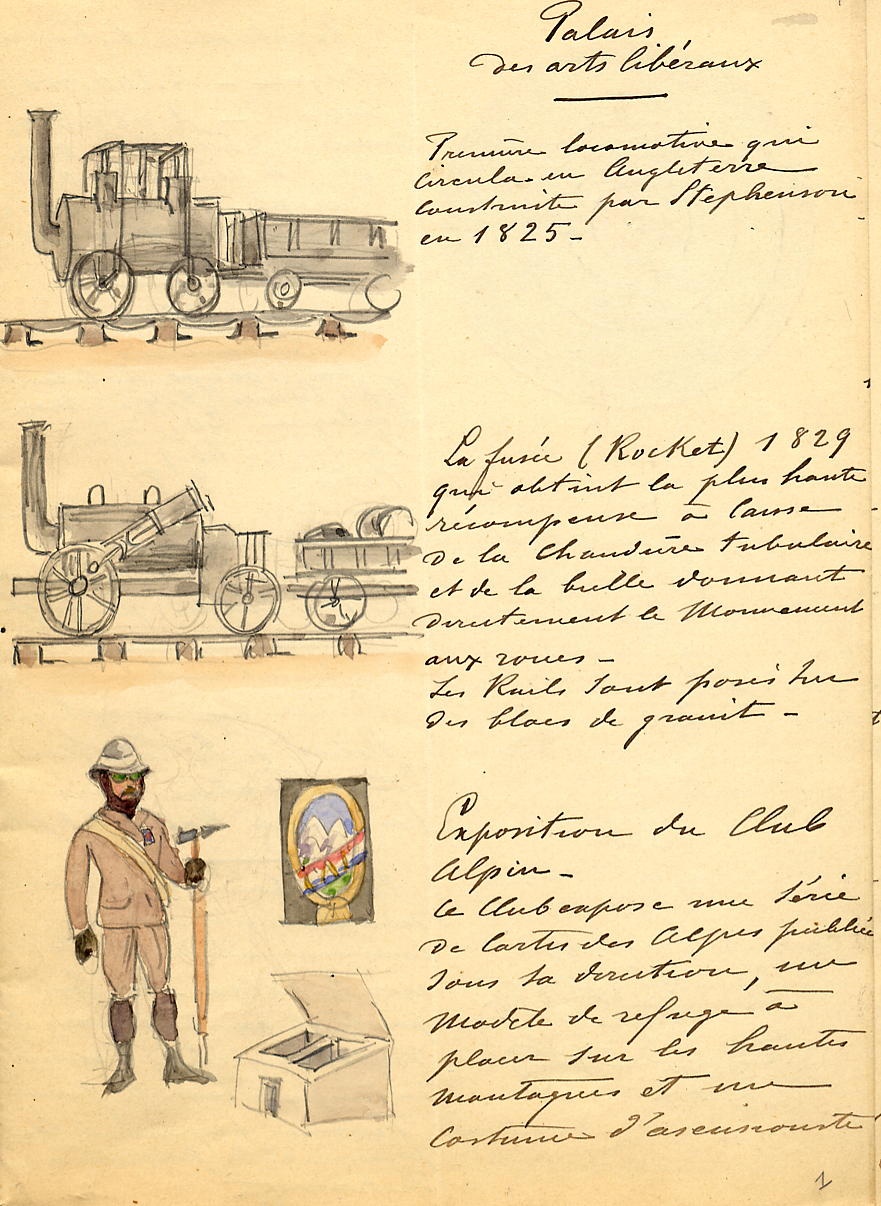 Palais
des arts libéraux
Première locomotive qui
circula en Angleterre
construite par Stephenson
en 1825 -
La fusée (Rocket) 1829
qui obtint la plus haute
récompense à cause
de la Chaudière tubulaire
et de la bielle donnant
directement le Mouvement
aux roues -
Les Rails sont posés sur
des blocs de granit -
Exposition du Club
Alpin -
Ce Club expose une série
de Cartes des Alpes publiée
sous sa direction, un
Modèle de refuge à
placer sur les hautes
montagnes et un
Costume d'ascensionniste
1